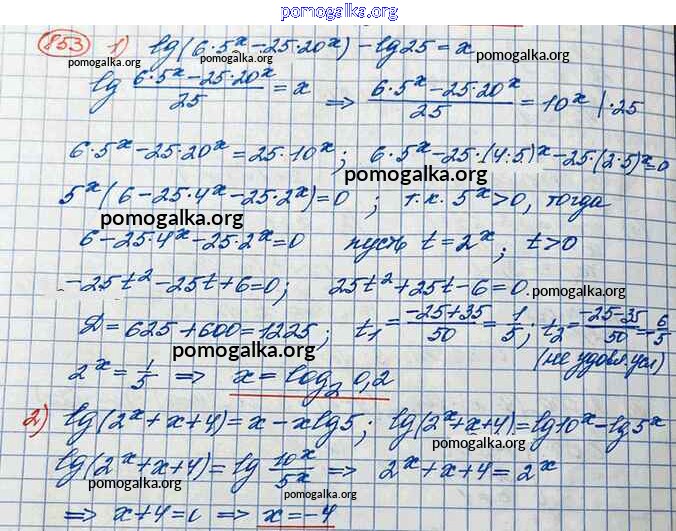 pomogalka.org
853 1) lg(6·5ˣ-25·20ˣ)-lg25=x
pomogalka.org pomogalka.org
lg (6·5ˣ-25·20ˣ)/25 = x ⇒ (6·5ˣ-25·20ˣ)/25 = 10ˣ |·25
6·5ˣ-25·20ˣ=25·10ˣ; 6·5ˣ-25·(4·5)ˣ-25·(2·5)ˣ=0
pomogalka.org
5ˣ(6-25·4ˣ-25·2ˣ)=0 ; т.к. 5ˣ>0, тогда
pomogalka.org
6-25·4ˣ-25·2ˣ=0 пусть t=2ˣ; t>0
-25t²-25t+6=0; 25t²+25t-6=0
pomogalka.org
D=625+600=1225; t₁=(-25+35)/50=1/5; t₂=(-25-35)/50=-6/5
pomogalka.org
(не удовл. усл)
2ˣ=1/5 ⇒ x=log₂0,2
2) lg(2ˣ+x+4)=x-xlg5; lg(2ˣ+x+4)=lg10ˣ-lg5ˣ
pomogalka.org
lg(2ˣ+x+4)=lg 10ˣ/5ˣ ⇒ 2ˣ+x+4=2ˣ
pomogalka.org pomogalka.org
pomogalka.org
⇒ x+4=0 ⇒ x=-4